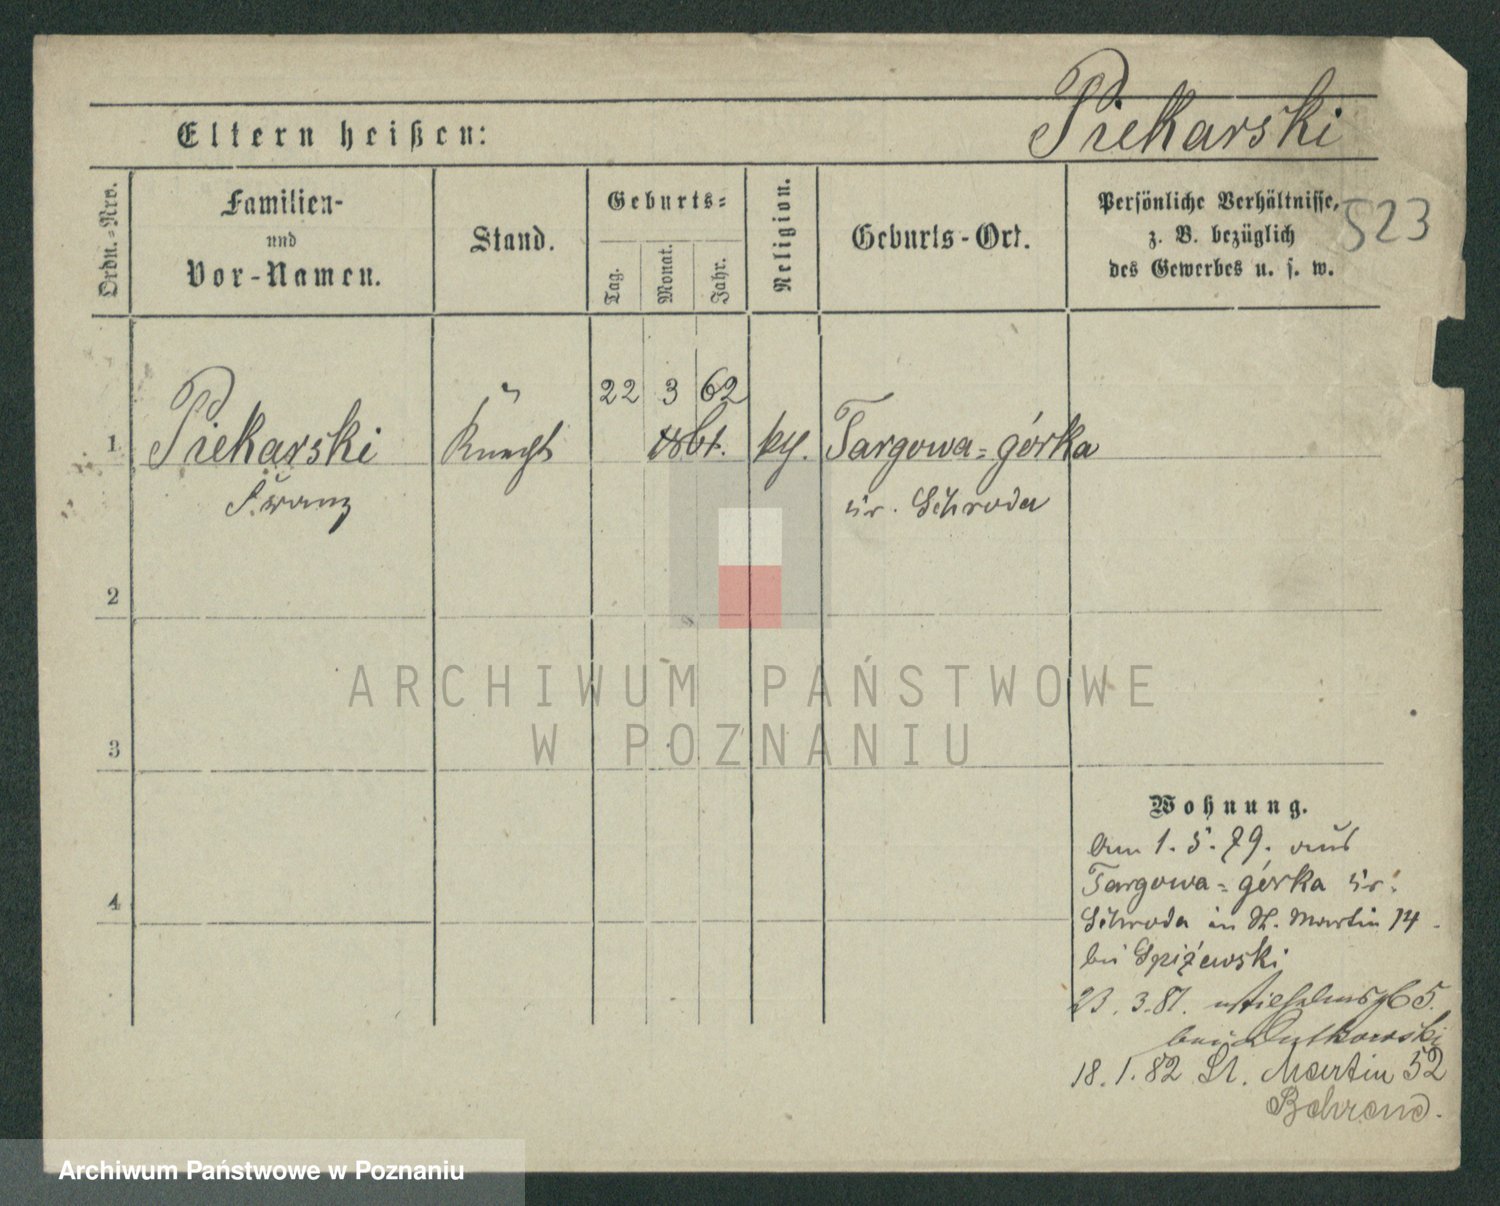 Piekarski
Eltern heißen:
523
Ordn.-Nro.
Familien-
und
Vor-Namen.
Stand.
Geburts=
Tag.
Monat.
Jahr.
Religion.
Geburts-Ort.
Persönliche Verhältnisse,
z. B. bezüglich
des Gewerbes u. s. w.
22 3 62
1 Piekarski Knecht kth. Targowa=górka
Franz Kr. Schroda
2
3
4
Wohnung.
Am 1. 5. 79. aus
Targowa=górka Kr.
Schroda in St. Martin 14
bei Spiżewski
23. 3. 81. 5.
bei Dutkowski
18. 1. 82 St. Martin 52
Behrend.
ARCHIWUM PAŃSTWOWE
W POZNANIU
Archiwum Państwowe w Poznaniu